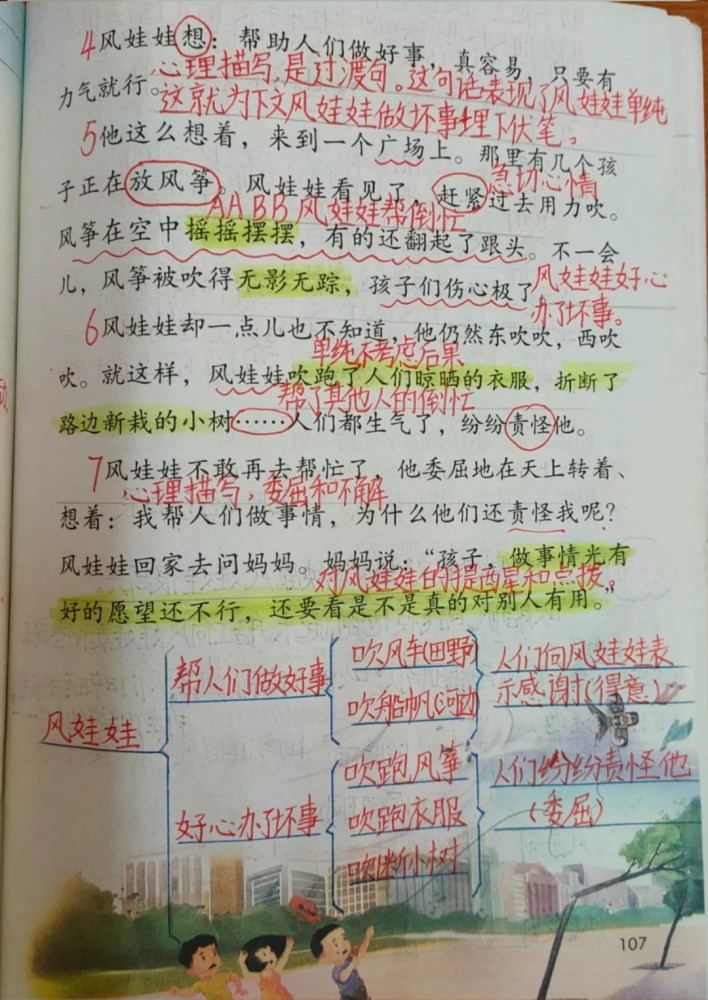 4风娃娃想：帮助人们做好事，真容易，只要有
心理描写，是过渡句。这句话表现了风娃娃单纯
力气就行。
这就为下文风娃娃做坏事埋下伏笔。
5他这么想着，来到一个广场上。那里有几个孩
急切心情
子正在放风筝。风娃娃看见了，赶紧过去用力吹。
AABB 风娃娃帮倒忙
风筝在空中摇摇摆摆，有的还翻起了跟头。不一会
儿，风筝被吹得无影无踪，孩子们伤心极了
风娃娃好心
办了坏事。
6风娃娃却一点儿也不知道，他仍然东吹吹，西吹
单纯不考虑后果
吹。就这样，风娃娃吹跑了人们晾晒的衣服，折断了
帮了其他人的倒忙
路边新栽的小树……人们都生气了，纷纷责怪他。
7风娃娃不敢再去帮忙了，他委屈地在天上转着、
心理描写，委屈和不解
想着：我帮人们做事情，为什么他们还责怪我呢？
风娃娃回家去问妈妈。妈妈说：“孩子，做事情光有
对风娃娃的提醒和点拨。
好的愿望还不行，还要看是不是真的对别人有用。”
风娃娃
帮人们做好事
吹风车(田野)
吹船帆(河边)
人们向风娃娃表
示感谢(得意)
好心办了坏事
吹跑风筝
吹跑衣服
吹断小树
人们纷纷责怪他
(委屈)
107